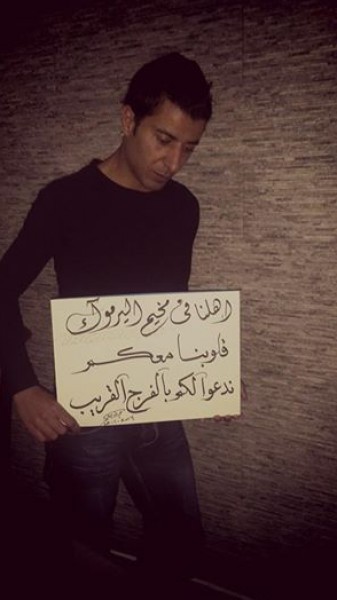 اهلنا في مخيم اليرموك
قلوبنا معكم
ندعوا لكو بالفرج القريب